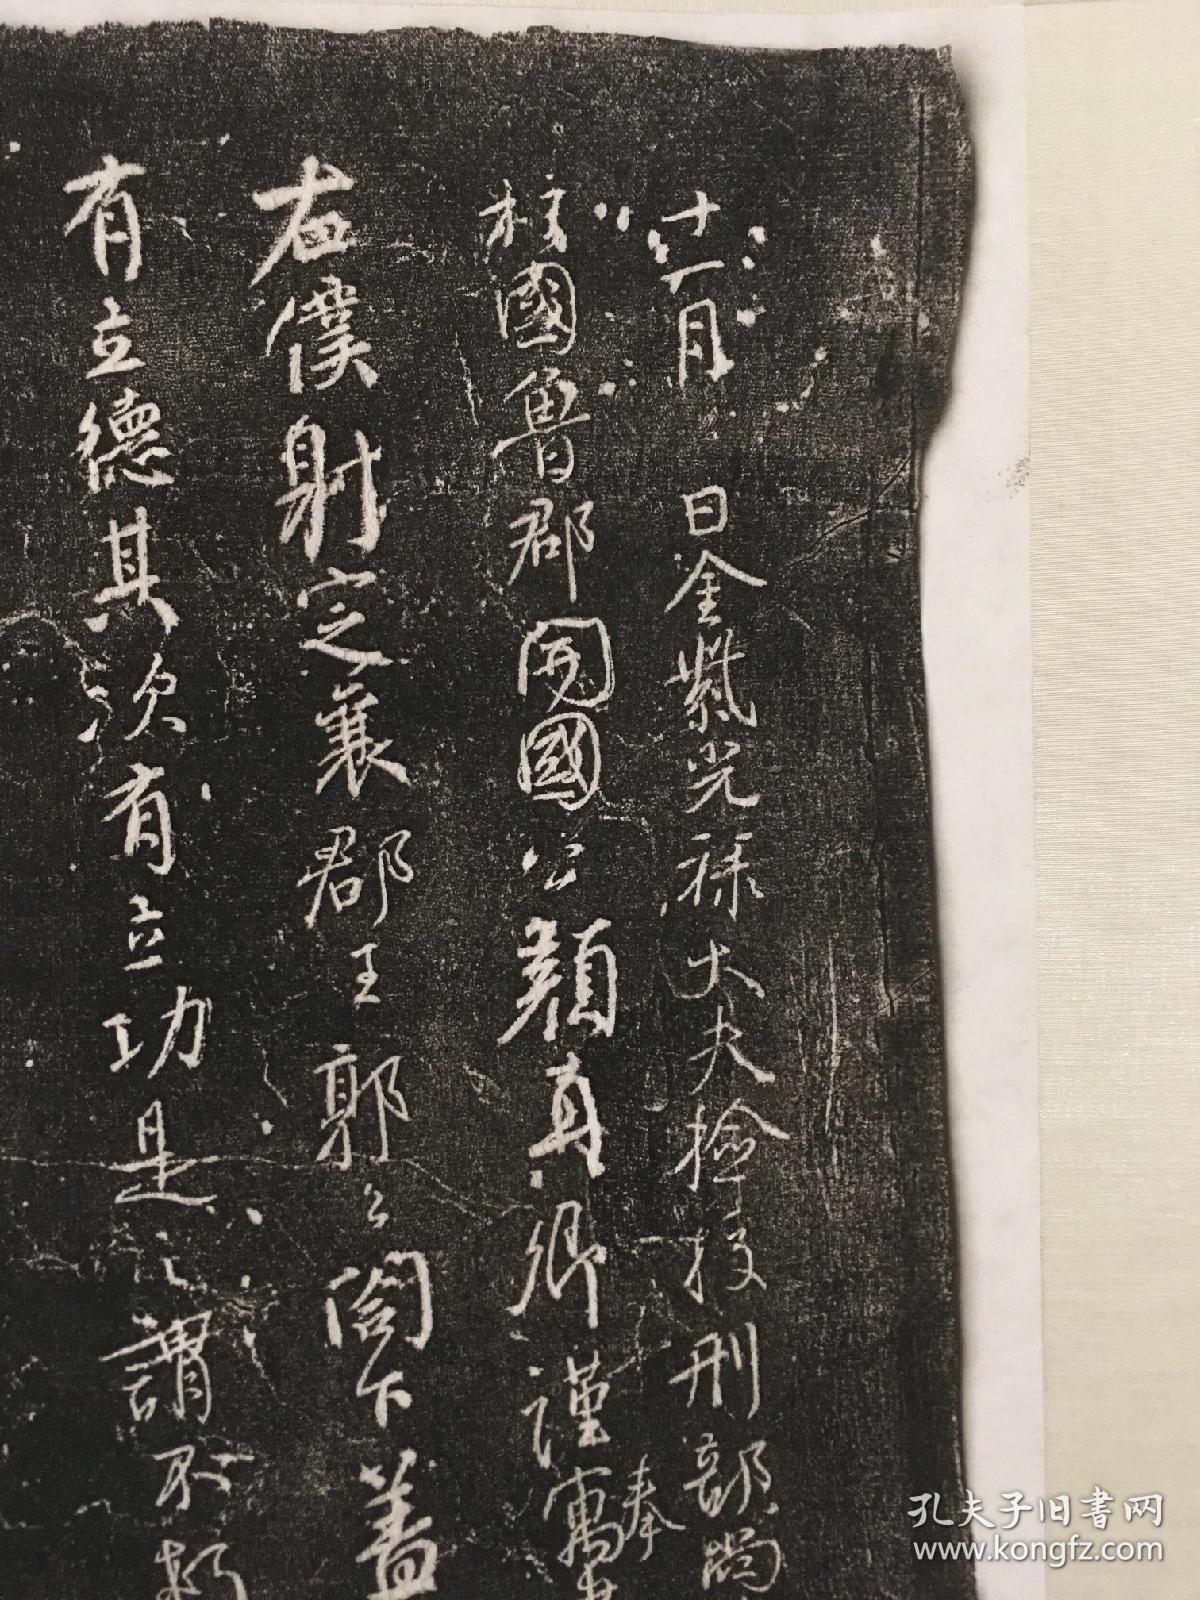 十一月 日金紫光禄大夫檢校刑部尚
柱國魯郡開國公顏真卿謹奉寓書
右僕射定襄郡王郭公閤下蓋
有立德其次有立功是之謂不朽
孔夫子旧书网
www.kongfz.com